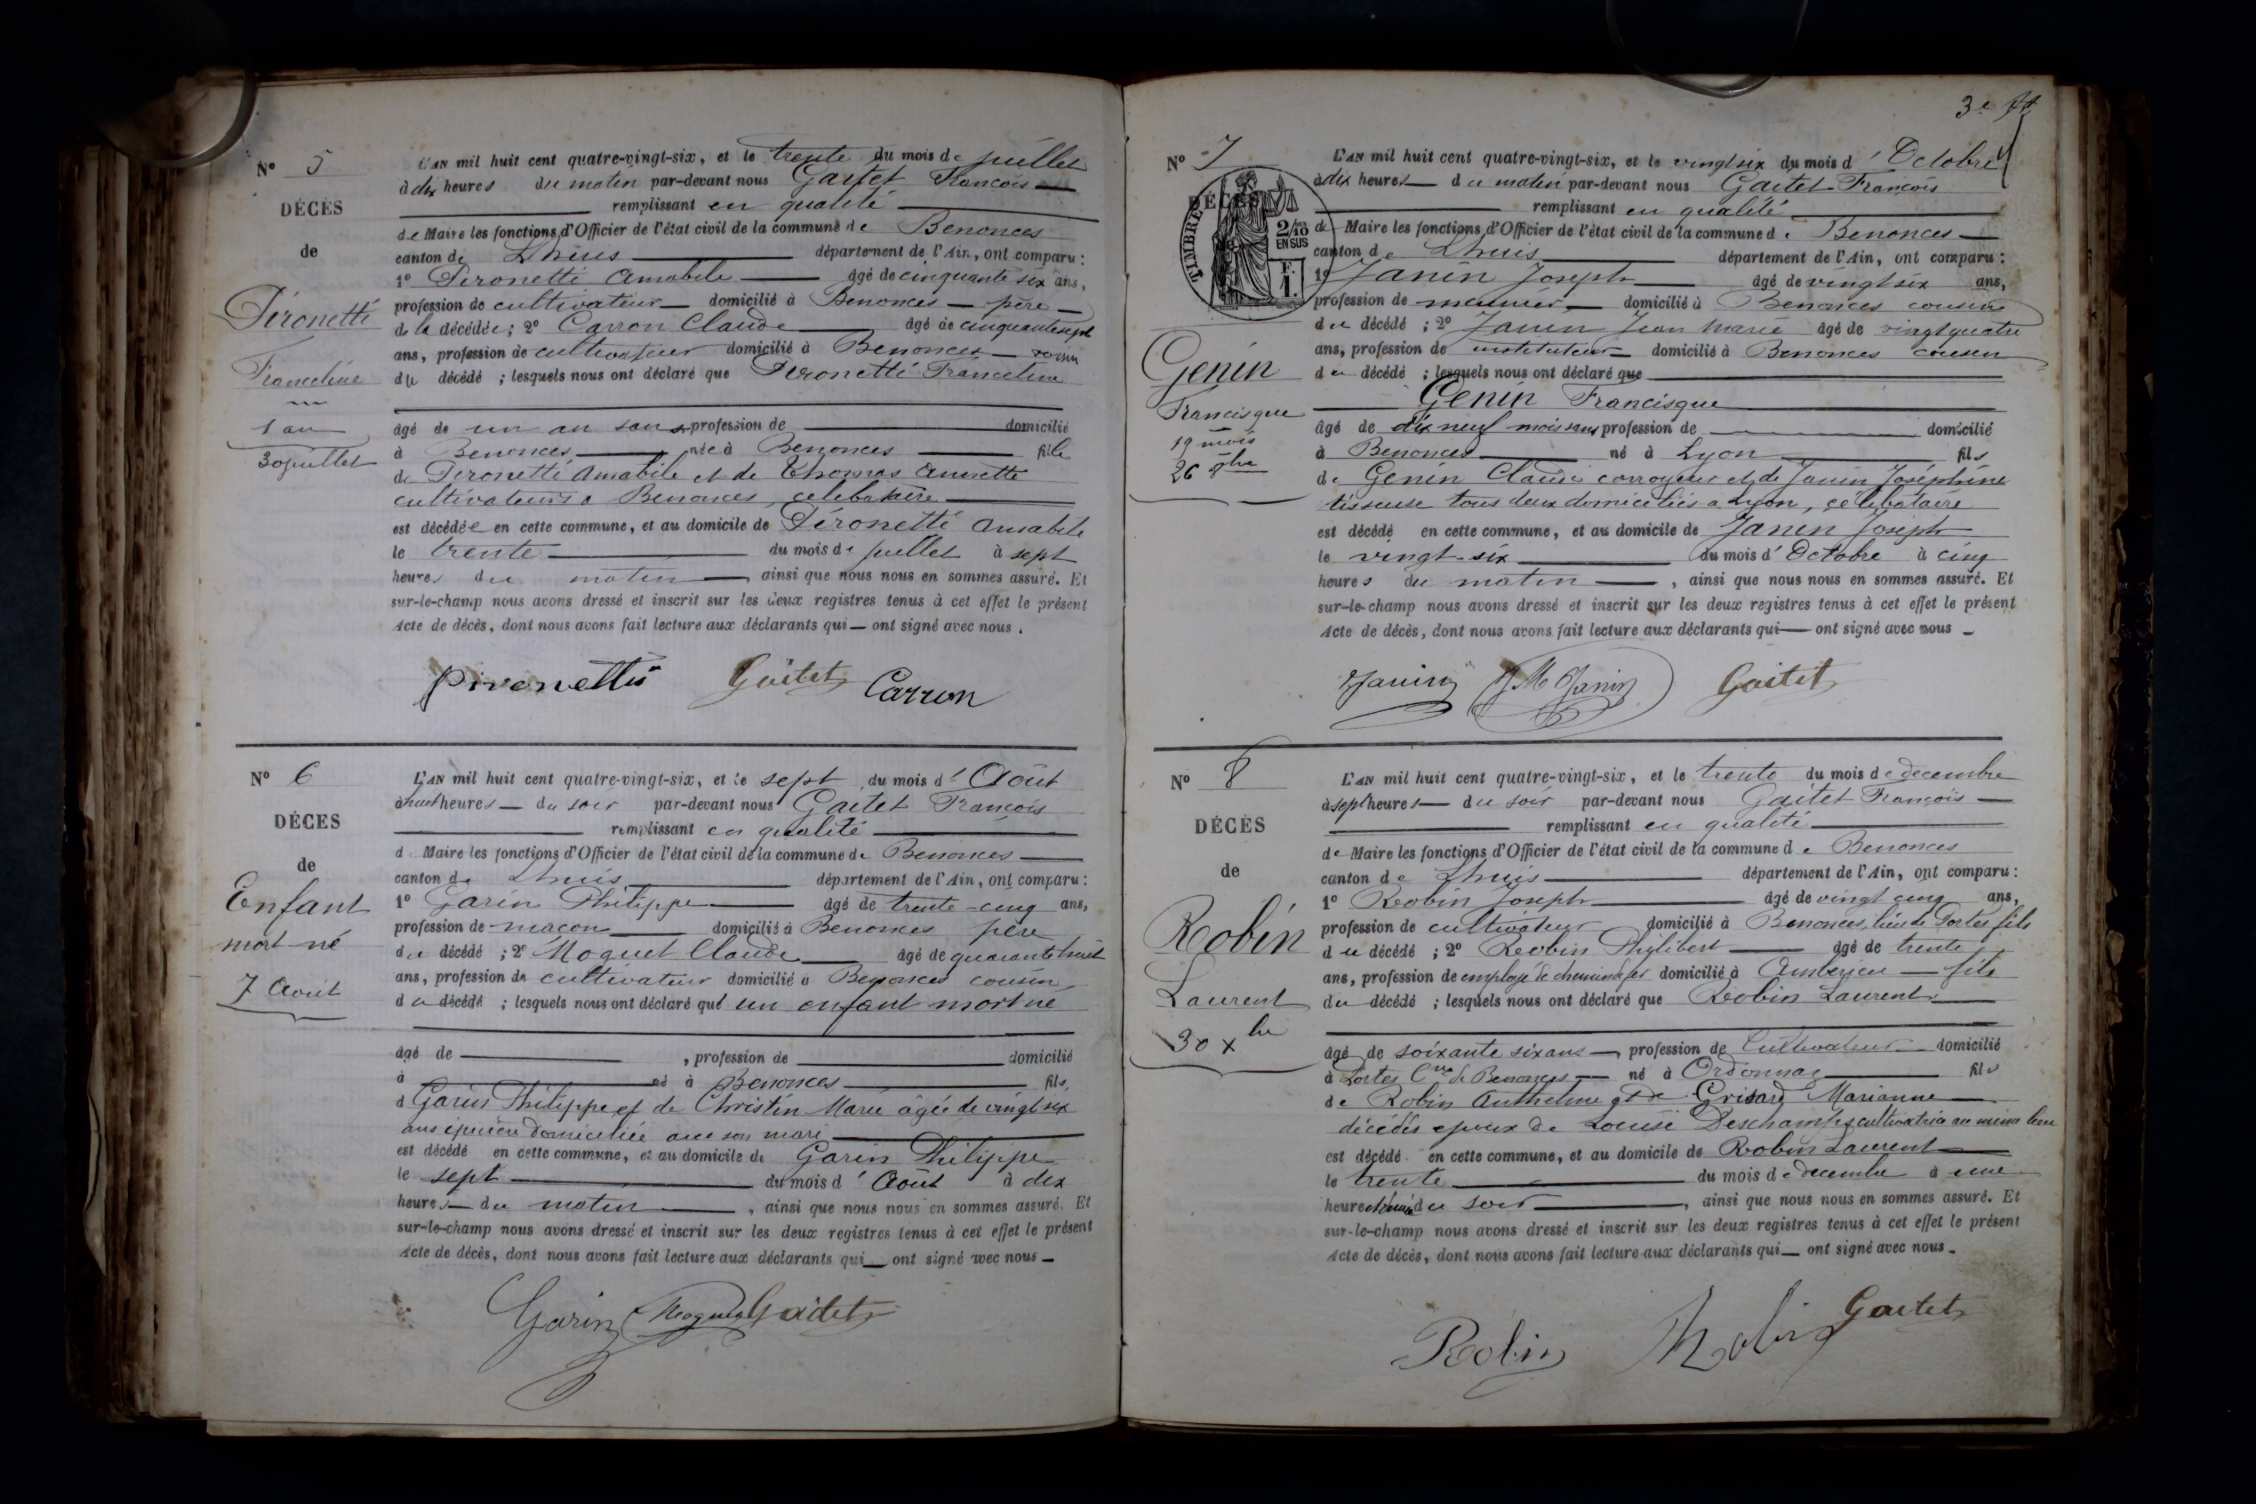 N° 5
DÉCÈS
de
Péronetti
Franceline
1 an
30 juillet
L'AN mil huit cent quatre-vingt-six, et le trente du mois de juillet
à dix heures du matin par-devant nous Gaitet François
remplissant en qualité
de Maire les fonctions d'Officier de l'état civil de la commune de Benonces
canton de Lhuis département de l'Ain, ont comparu :
1° Péronetti Amabile âgé de cinquante six ans,
profession de cultivateur domicilié à Benonces père
de la décédée ; 2° Carron Claude âgé de cinquante sept
ans, profession de cultivateur domicilié à Benonces voisin
du décédé ; lesquels nous ont déclaré que Péronetti Franceline
âgé de un an sans profession de domicilié
à Benonces née à Benonces fille
de Péronetti Amabile et de Thomas Annette
cultivateurs à Benonces, célebataire
est décédée en cette commune, et au domicile de Péronetti Amabile
le trente du mois de juillet à sept
heures du matin, ainsi que nous nous en sommes assuré. Et
sur-le-champ nous avons dressé et inscrit sur les deux registres tenus à cet effet le présent
Acte de décès, dont nous avons fait lecture aux déclarants qui ont signé avec nous.
Gaitet Carron
N° 6
DÉCES
de
Enfant
mort né
7 Août
L'AN mil huit cent quatre-vingt-six, et le sept du mois d'Août
à huit heures du soir par-devant nous Gaitet François
remplissant en qualité
d Maire les fonctions d'Officier de l'état civil de la commune de Benonces
canton de Lhuis département de l'Ain, ont comparu :
1° Garin Philippe âgé de trente-cinq ans,
profession de maçon domicilié à Benonces père
du décédé ; 2° Moguet Claude âgé de quarante huit
ans, profession de cultivateur domicilié à Benonces cousin
du décédé ; lesquels nous ont déclaré que un enfant mort né
âgé de , profession de domicilié
à né à Benonces fils
d Garin Philippe et de Christin Marie âgée de vingt six
ans épicière domiciliée avec son mari
est décédé en cette commune, et au domicile de Garin Philippe
le sept du mois d'Août à dix
heures du matin, ainsi que nous nous en sommes assuré. Et
sur-le-champ nous avons dressé et inscrit sur les deux registres tenus à cet effet le présent
Acte de décès, dont nous avons fait lecture aux déclarants qui ont signé avec nous
Garin Moguet Gaitet
3e
N° 7
DÉCÈS
TIMBRE
2/10
EN SUS
F.
1.
Genin
Francisque
19 mois
26 8bre
L'AN mil huit cent quatre-vingt-six, et le vingt six du mois d'Octobre
à dix heures du matin par-devant nous Gaitet François
remplissant en qualité
de Maire les fonctions d'Officier de l'état civil de la commune de Benonces
canton de Lhuis département de l'Ain, ont comparu :
1° Janin Joseph âgé de vingt six ans,
profession de meunier domicilié à Benonces cousin
du décédé ; 2° Janin Jean Marie âgé de vingt quatre
ans, profession de instituteur domicilié à Benonces cousin
du décédé ; lesquels nous ont déclaré que
Genin Francisque
âgé de dix neuf mois sans profession de domicilié
à Benonces né à Lyon fils
de Genin Claude corroyeur et de Janin Joséphine
tisseuse tous deux domiciliés à Lyon, célebataire
est décédé en cette commune, et au domicile de Janin Joseph
le vingt-six du mois d'Octobre à cinq
heures du matin, ainsi que nous nous en sommes assuré. Et
sur-le-champ nous avons dressé et inscrit sur les deux registres tenus à cet effet le présent
Acte de décès, dont nous avons fait lecture aux déclarants qui ont signé avec nous
Janin JM Janin Gaitet
N° 8
DÉCÈS
de
Robin
Laurent
30 xbre
L'AN mil huit cent quatre-vingt-six, et le trente du mois de decembre
à sept heures du soir par-devant nous Gaitet François
remplissant en qualité
de Maire les fonctions d'Officier de l'état civil de la commune de Benonces
canton de Lhuis département de l'Ain, ont comparu :
1° Robin Joseph âgé de vingt cinq ans,
profession de cultivateur domicilié à Benonces, lieu de Portes fils
du décédé ; 2° Robin Phylibert âgé de trente
ans, profession de employé de chemin de fer domicilié à Amberieu fils
du décédé ; lesquels nous ont déclaré que Robin Laurent
âgé de soixante six ans profession de Cultivateur domicilié
à Portes Cne de Benonces né à Ordonnaz fils
de Robin Anthelme et de Grisard Marianne
décédés epoux de Louise Deschamps cultivatrice au même lieu
est décédé en cette commune, et au domicile de Robin Laurent
le trente du mois de decembre à une
heure et demie du soir, ainsi que nous nous en sommes assuré. Et
sur-le-champ nous avons dressé et inscrit sur les deux registres tenus à cet effet le présent
Acte de décès, dont nous avons fait lecture aux déclarants qui ont signé avec nous
Robin Robin Gaitet